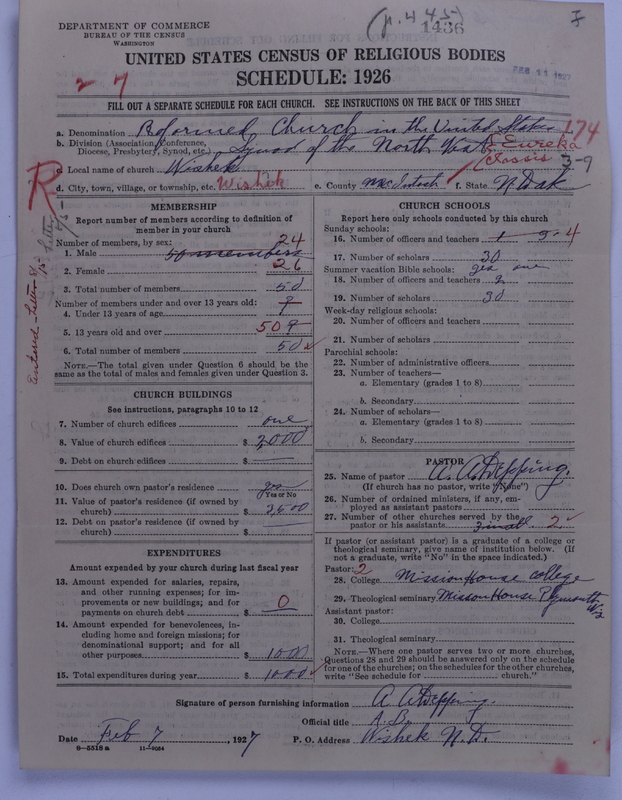 DEPARTMENT OF COMMERCE
BUREAU OF THE CENSUS
WASHINGTON
(p. 445)
1436
UNITED STATES CENSUS OF RELIGIOUS BODIES
SCHEDULE: 1926
FEB 11 1927
FILL OUT A SEPARATE SCHEDULE FOR EACH CHURCH. SEE INSTRUCTIONS ON THE BACK OF THIS SHEET
a. Denomination Reformed Church in the United States 174
b. Division (Association, Conference, Diocese, Presbytery, Synod, etc.) Synod of the North West Eureka Classis
3-9
c. Local name of church Wishek
d. City, town, village, or township, etc. Wishek e. County McIntosh f. State N. Dak
MEMBERSHIP
Report number of members according to definition of member in your church
Number of members, by sex:
1. Male 50 members 24
2. Female 26
3. Total number of members 50
Number of members under and over 13 years old:
4. Under 13 years of age
5. 13 years old and over 50
6. Total number of members 50
NOTE.—The total given under Question 6 should be the same as the total of males and females given under Question 3.
CHURCH BUILDINGS
See instructions, paragraphs 10 to 12
7. Number of church edifices one
8. Value of church edifices $ 2,000
9. Debt on church edifices $
10. Does church own pastor's residence yes
Yes or No
11. Value of pastor's residence (if owned by church) $ 2,500
12. Debt on pastor's residence (if owned by church) $
EXPENDITURES
Amount expended by your church during last fiscal year
13. Amount expended for salaries, repairs, and other running expenses; for improvements or new buildings; and for payments on church debt $ 0
14. Amount expended for benevolences, including home and foreign missions; for denominational support; and for all other purposes $ 1000
15. Total expenditures during year $ 1000
CHURCH SCHOOLS
Report here only schools conducted by this church
Sunday schools:
16. Number of officers and teachers 4
17. Number of scholars 30
Summer vacation Bible schools: yes one
18. Number of officers and teachers 2
19. Number of scholars 30
Week-day religious schools:
20. Number of officers and teachers
21. Number of scholars
Parochial schools:
22. Number of administrative officers
23. Number of teachers—
a. Elementary (grades 1 to 8)
b. Secondary
24. Number of scholars—
a. Elementary (grades 1 to 8)
b. Secondary
PASTOR
25. Name of pastor A. A. Depping
(If church has no pastor, write "None")
26. Number of ordained ministers, if any, employed as assistant pastors
27. Number of other churches served by the pastor or his assistants 2
If pastor (or assistant pastor) is a graduate of a college or theological seminary, give name of institution below. (If not a graduate, write "No" in the space indicated.)
Pastor: 2
28. College Mission House College
29. Theological seminary Mission House Plymouth Wis
Assistant pastor:
30. College
31. Theological seminary
NOTE.—Where one pastor serves two or more churches, Questions 28 and 29 should be answered only on the schedule for one of the churches; on the schedules for the other churches, write "See schedule for church."
Signature of person furnishing information A. A. Depping
Official title A. B.
Date Feb 7, 1927 P. O. Address Wishek N. D.
8—5518 a 11—9054